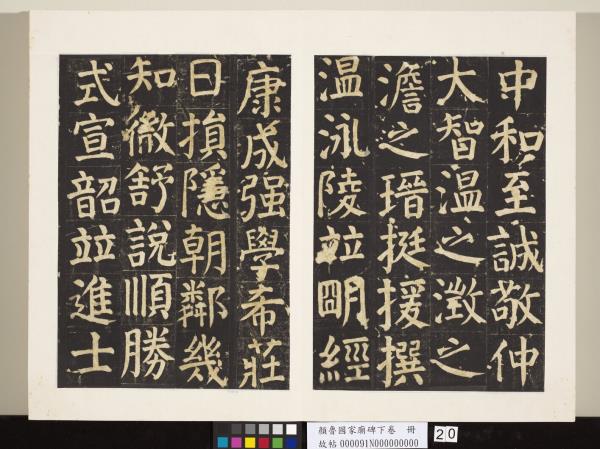 中和至誠敬仲
大智温之澂之
澹之瑨挺援撰
温泳陵竝明經
康成强學希莊
日損隱朝鄰幾
知微舒說順勝
式宣韶竝進士
顏魯國家廟碑下卷 冊
故帖 000091N000000000
20